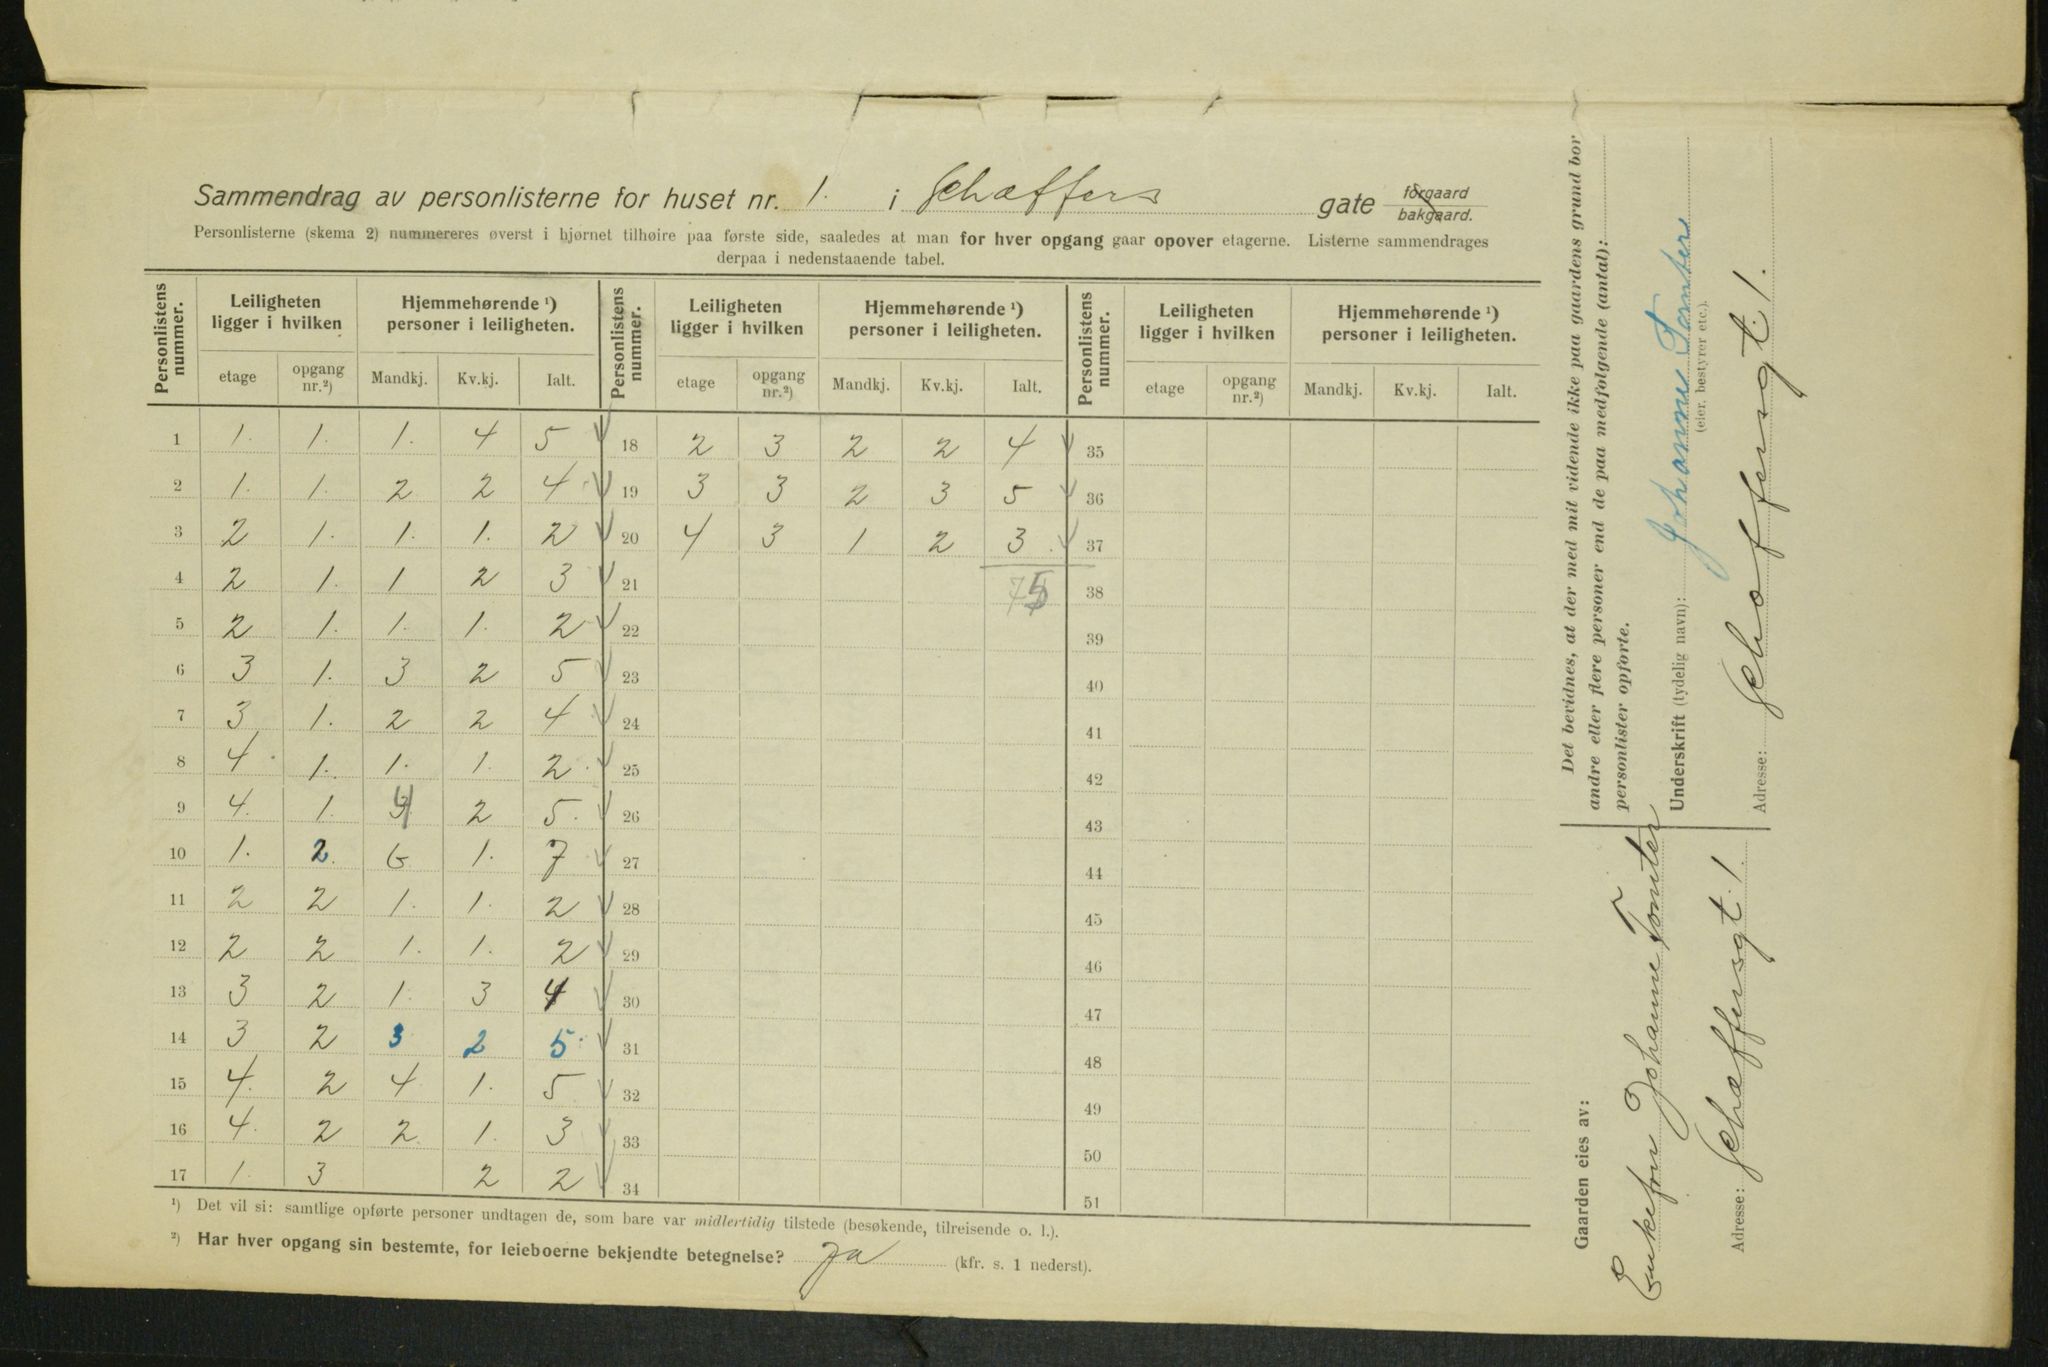 Sammendrag av personlisterne for huset nr. 1. i Schæffers gate forgaard bakgaard.
Personlisterne (skema 2) nummereres øverst i hjørnet tilhøire paa første side, saaledes at man for hver opgang gaar opover etagerne. Listerne sammendrages
derpaa i nedenstaaende tabel.
Personlistens nummer. Leiligheten ligger i hvilken Hjemmehørende ¹) personer i leiligheten. Personlistens nummer. Leiligheten ligger i hvilken Hjemmehørende ¹) personer i leiligheten. Personlistens nummer. Leiligheten ligger i hvilken Hjemmehørende ¹) personer i leiligheten.
etage opgang nr.²) Mandkj. Kv.kj. Ialt. etage opgang nr.²) Mandkj. Kv.kj. Ialt. etage opgang nr.²) Mandkj. Kv.kj. Ialt.
1 1. 1. 1. 4 5 18 2 3 2 2 4 35
2 1. 1. 2 2 4 19 3 3 2 3 5 36
3 2 1. 1. 1. 2 20 4 3 1 2 3 37
4 2 1. 1 2 3 21 75 38
5 2 1. 1. 1. 2 22 39
6 3 1. 3 2 5 23 40
7 3 1. 2 2 4 24 41
8 4 1. 1. 1. 2 25 42
9 4. 1. 2 5. 26 43
10 1. 2. 6 1. 7 27 44
11 2 2 1. 1. 2 28 45
12 2 2 1. 1. 2 29 46
13 3 2 1. 3 4 30 47
14 3 2 3 2 5. 31 48
15 4. 2 4 1. 5 32 49
16 4. 2 2 1. 3 33 50
17 1. 3 2 2 34 51
¹) Det vil si: samtlige opførte personer undtagen de, som bare var midlertidig tilstede (besøkende, tilreisende o. l.).
²) Har hver opgang sin bestemte, for leieboerne bekjendte betegnelse? Ja (kfr. s. 1 nederst).
Det bevidnes, at der med mit vidende ikke paa gaardens grund bor
andre eller flere personer end de paa medfølgende (antal):
personlister opførte.
Underskrift (tydelig navn): Johanne Tomter
(eier, bestyrer etc.).
Adresse: Schæffersgt. 1.
Gaarden eies av:
Enkefru Johanne Tomter
Adresse: Schæffersgt. 1.